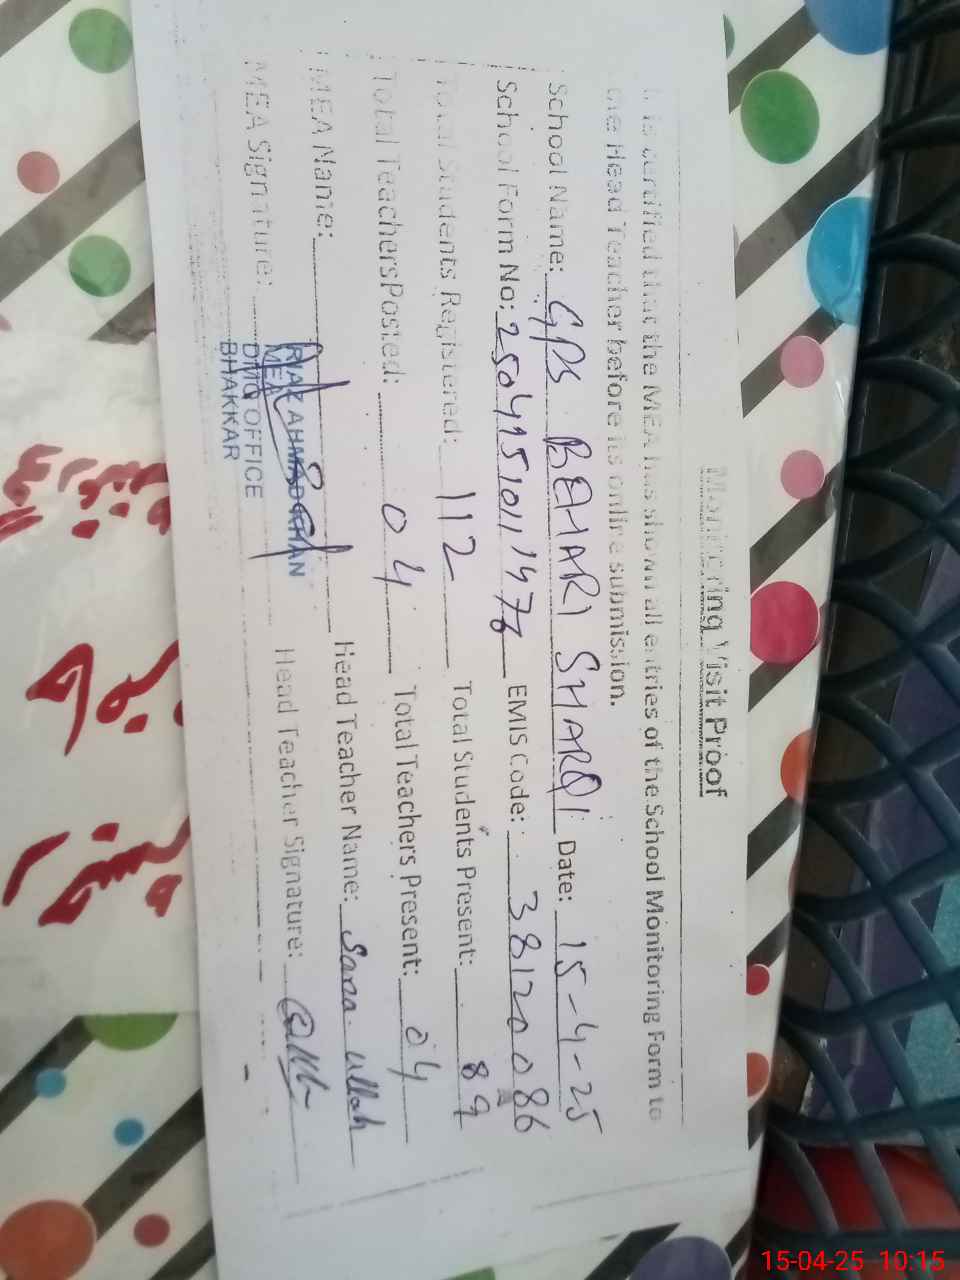 Monitoring Visit Proof
It is certified that the MEA has shown all entries of the School Monitoring Form to
the Head Teacher before its online submission.
School Name: GPS BEHARI SHARQI Date: 15-4-25
School Form No: EMIS Code: 38120086
Total Students Registered: 112 Total Students Present: 89
Total Teachers Posted: 04 Total Teachers Present: 04
MEA Name: Head Teacher Name: Sana ullah
RIAZ AHMAD KHAN
MEA
DMO OFFICE
BHAKKAR
MEA Signature: Head Teacher Signature:
15-04-25 10:15